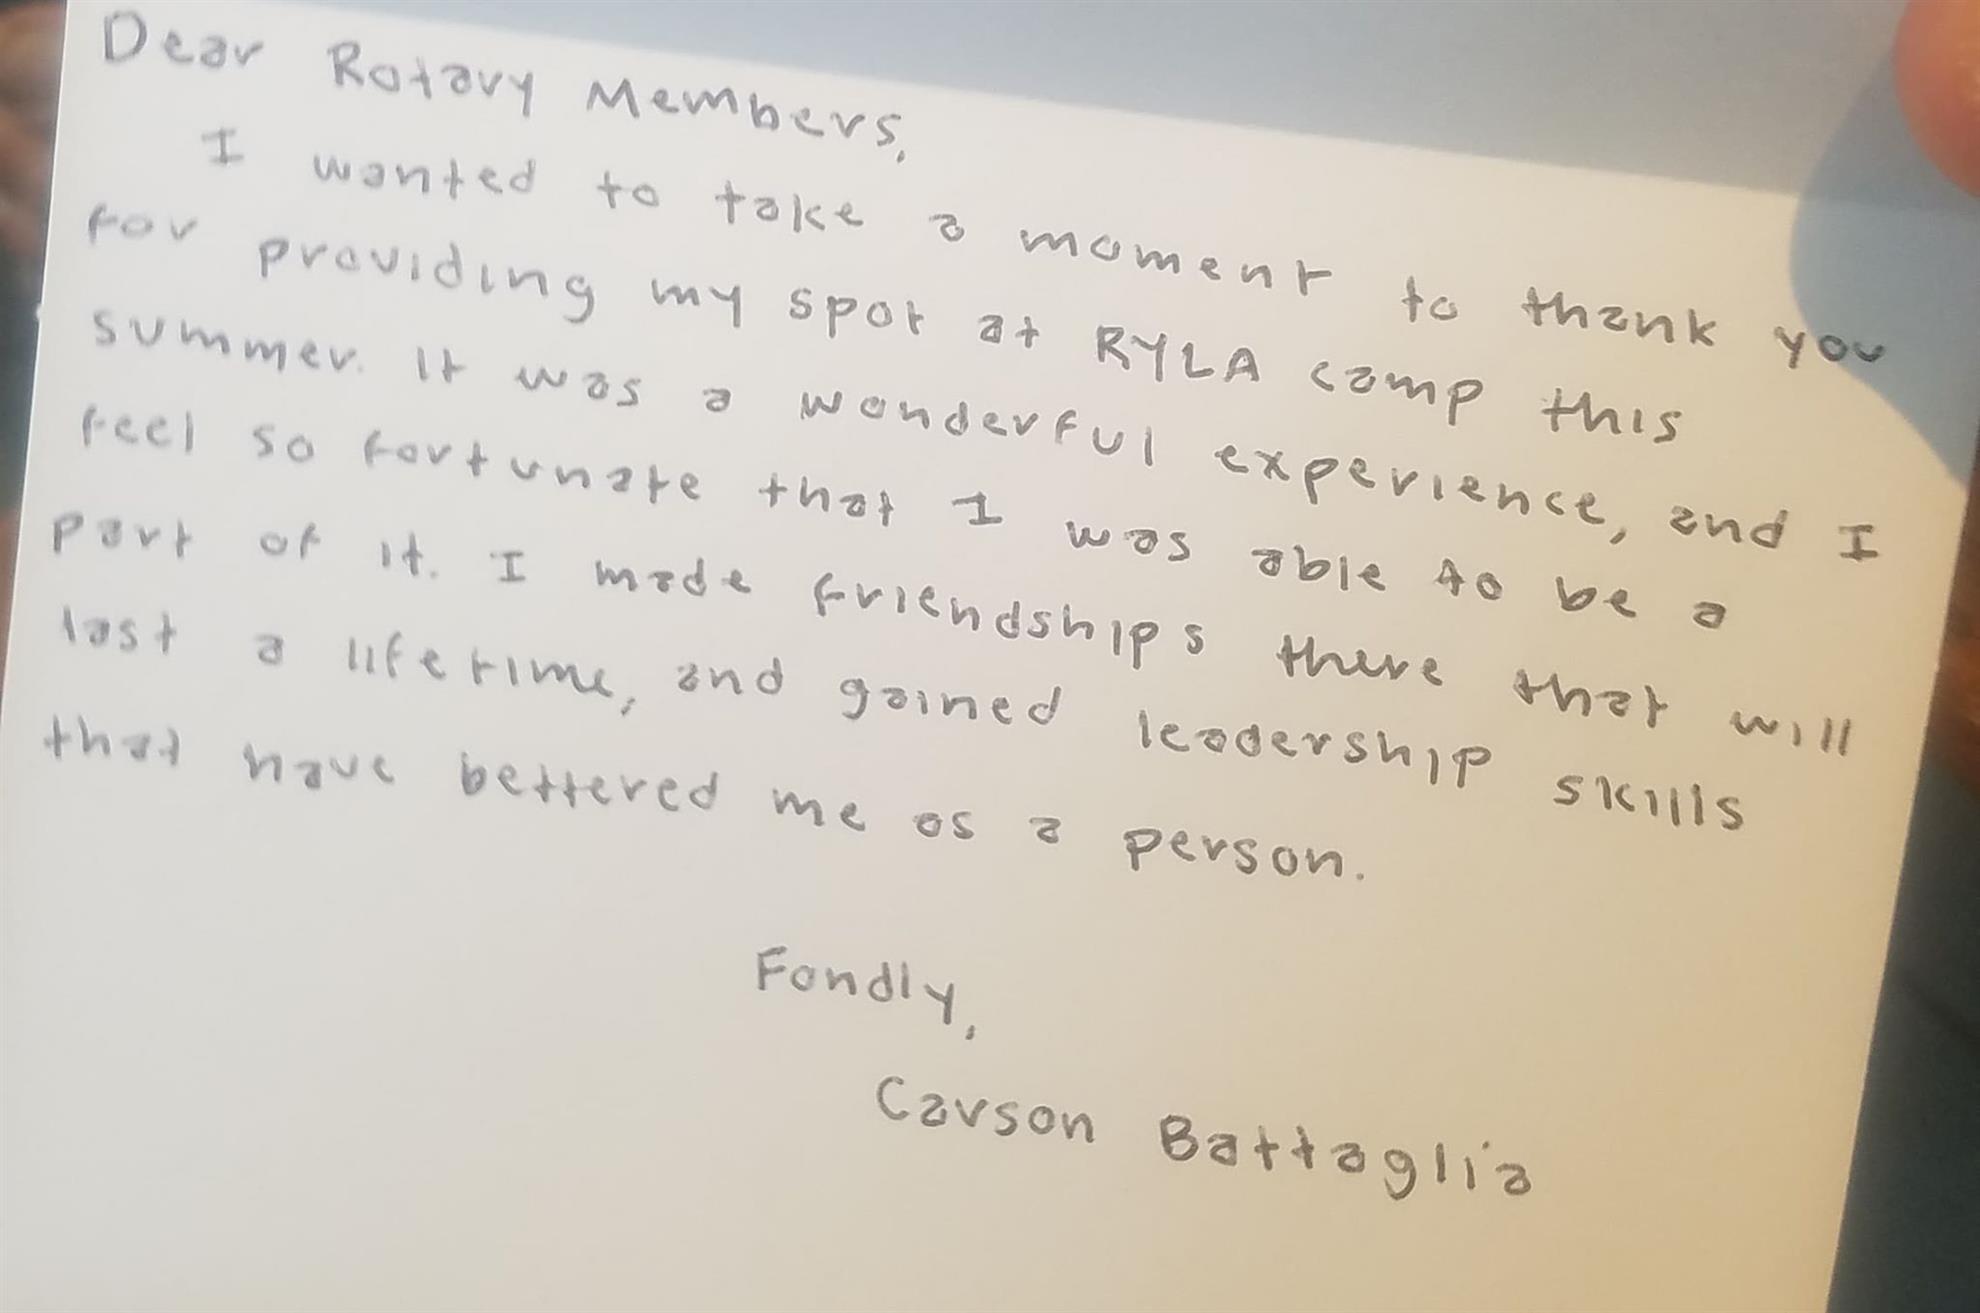 Dear Rotary Members,
I wanted to take a moment to thank you
for providing my spot at RYLA camp this
summer. It was a wonderful experience, and I
feel so fortunate that I was able to be a
part of it. I made friendships there that will
last a lifetime, and gained leadership skills
that have bettered me as a person.
Fondly,
Carson Battaglia